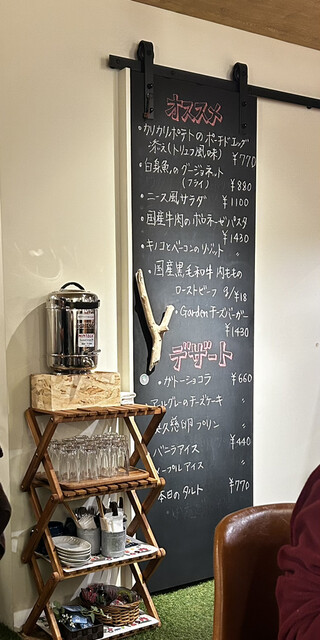 オススメ
・カリカリポテトのポーチドエッグ
添え(トリュフ風の味) ¥770
・白身魚のグージョネット
(フライ) ¥880
・ニース風サラダ ¥1100
・国産牛肉のボロネーゼパスタ
¥1430
・キノコとベーコンのリゾット 〃
・国産黒毛和牛 内ももの
ローストビーフ g/¥18
・Gardenチーズバーガー
¥1430
デザート
・ガトーショコラ ¥660
・アールグレーのチーズケーキ 〃
卵プリン 〃
バニラアイス ¥440
メープルアイス 〃
本日のタルト ¥770